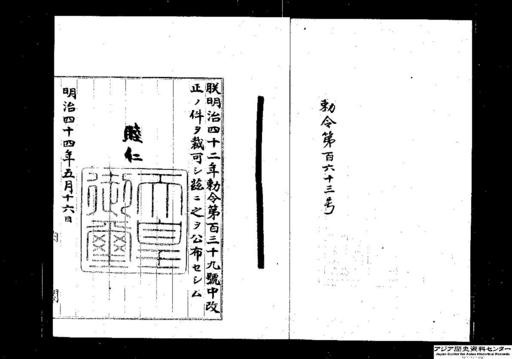 勅令第百六十三号
朕明治四十二年勅令第百三十九號中改
正ノ件ヲ裁可シ茲ニ之ヲ公布セシム
睦仁
天皇御璽
明治四十四年五月十六日
内閣
アジア歴史資料センター
Japan Center for Asian Historical Records